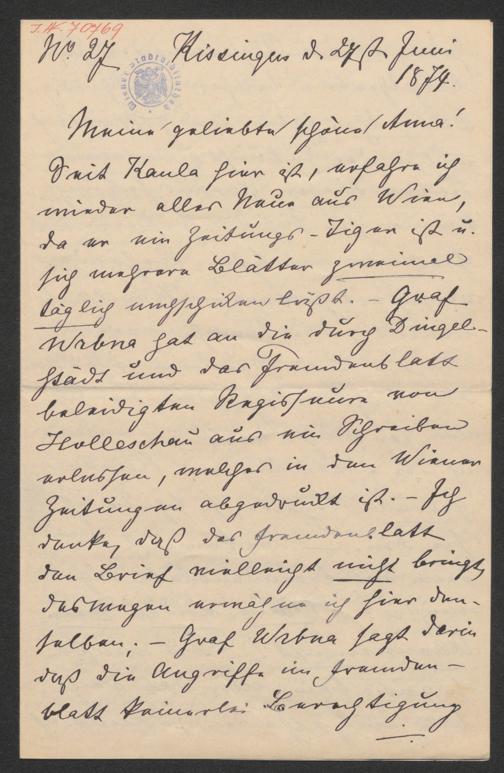 I.N. 70769
No 27 Kissingen d. 27st Juni
1874.
Wiener Stadtbibliothek
Meine geliebte schöne Anna!
Seit Kaula hier ist, erfahre ich
wieder alles Neue aus Wien,
da er ein Zeitungs-Tiger ist u.
sich mehrere Blätter zweimal
täglich nachschiken läßt. – Graf
Wrbna hat an die durch Dingel-
städt und das Fremdenblatt
beleidigten Regisseure von
Holleschau aus ein Schreiben
erlassen, welches in den Wiener
Zeitungen abgedruckt ist. – Ich
denke, daß das Fremdenblatt
den Brief vielleicht nicht bringt,
deswegen erwähne ich hier den-
selben; – Graf Wrbna sagt darin
daß die Angriffe im Fremden-
blatt keinerlei Berechtigung